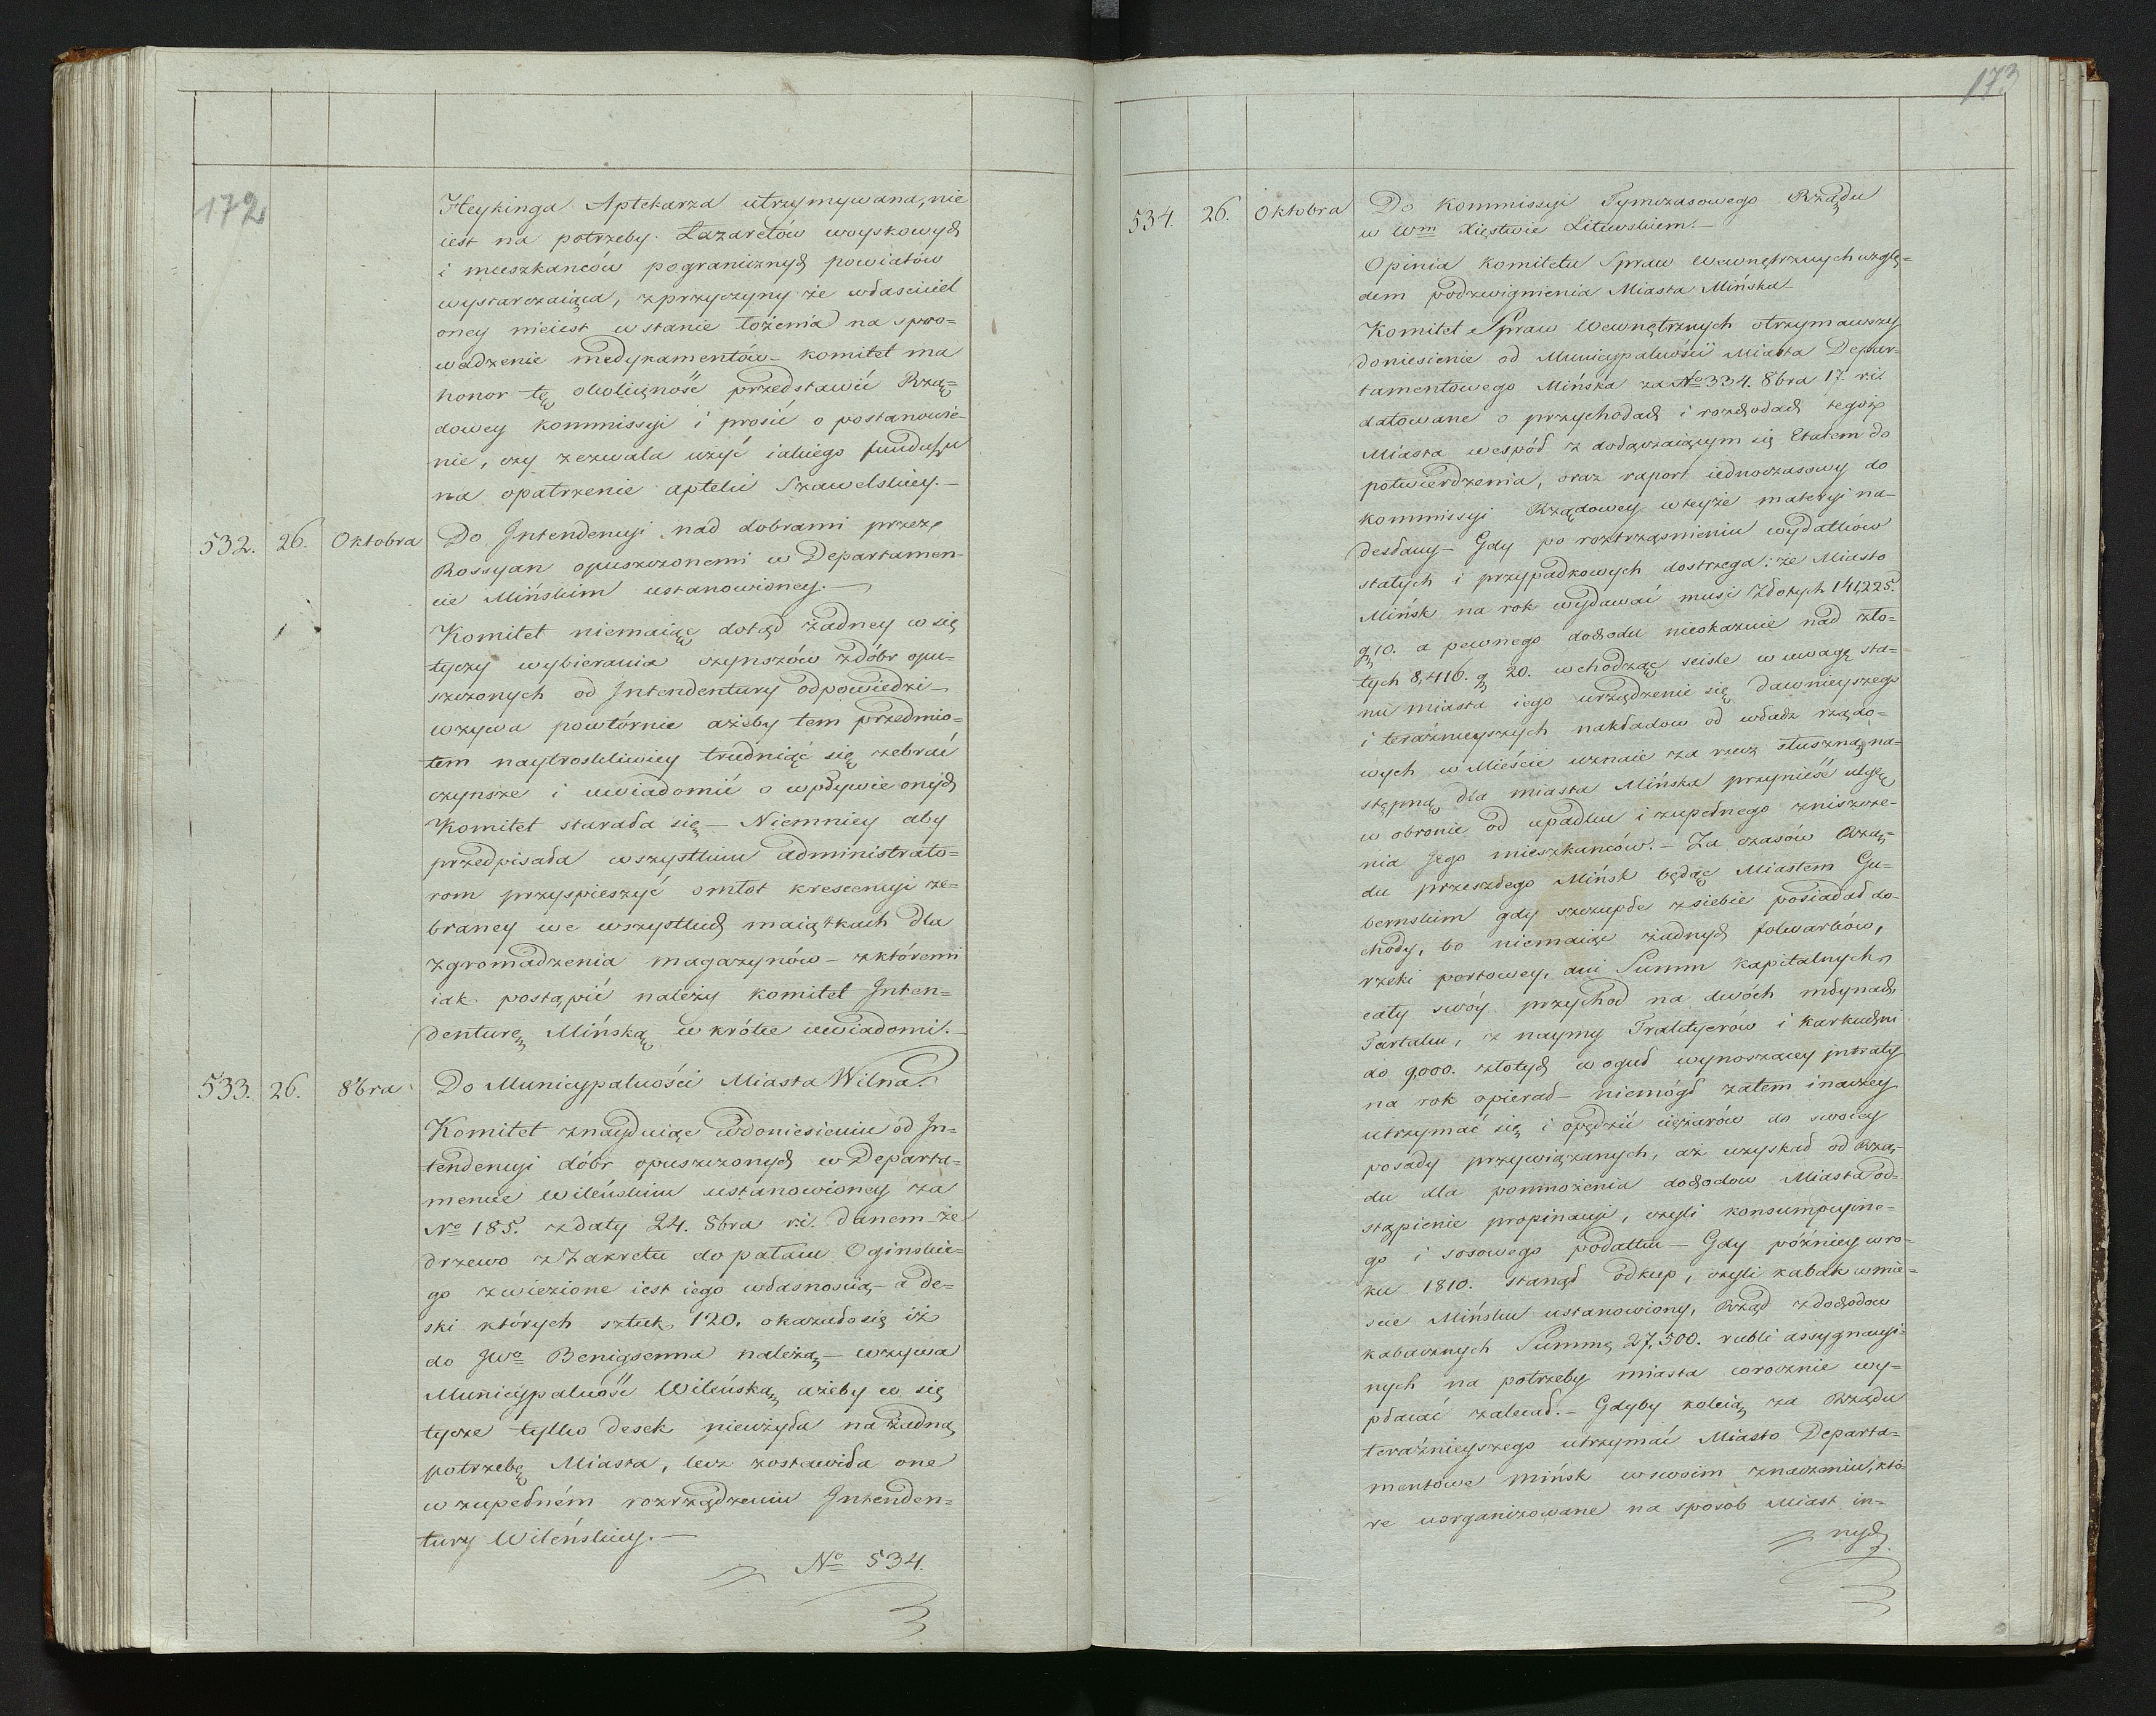 172
Heykinga Aptekarza utrzymywana, nie
iest na potrzeby Lazaretów woyskowych
i mieszkańców pogranicznych powiatów
wystarczaiąca, zprzyczyny że własciciel
oney nieiest wstanie łożenia na spro=
wadzenie medykamentów – komitet ma
honor tę okoliczność przedstawić Rzą=
dowey kommissyi i prosić o postanowie-
nie, czy zezwala użyć iakiego funduszu
na opatrzenie apteki Szawelskiey. –
532. 26. Oktobra Do Intendencyi nad dobrami przez
Rossyan opuszczonemi w Departamen-
cie Mińskim ustanowioney. –
Komitet niemaiąc dotąd żadney w się
tyczy wybierania czynszów zdóbr opu=
szczonych od Intendentury odpowiedzi –
wzywa powtórnie ażeby tem przedmio=
tem naytroskliwiey trudniąc się zebrać
czynsze i uwiadomić o wpływie onych
Komitet starała się – Niemniey aby
przedpisała wszystkim administrato=
rom przyspieszyć omłot krescencyi ze=
braney we wszystkich maiątkach dla
zgromadzenia magazynów – zktóremi
iak postąpić należy komitet Inten=
denturę Mińską wkrótce uwiadomi. –
533. 26. 8bra Do Municypalności Miasta Wilna.
Komitet znayduiąc wdoniesieniu od In=
tendencyi dóbr opuszczonych w Departa=
mencie Wileńskim ustanowioney za
No 185. zdaty 24. 8bra r.i. danem że
drzewo z Zakretu do pałacu Oginskie=
go zwiezione iest iego własnoscią – a de=
ski których sztuk 120. okazało się iż
do JWo Benigsenna należą – wzywa
Municypalność Wileńską ażeby w się
tycze tylko desek nieużyła na żadną
potrzebę Miasta, lecz zostawiła one
w zupełném rozrządzeniu Intenden=
tury Wileńskiey. –
No 534.
173
534. 26. Oktobra Do Kommissyi Tymczasowego Rządu
w Wm Xięstwie Litewskiem. –
Opinia Komitetu Spraw Wewnętrznych wzglę=
dem podzwignienia Miasta Mińska
Komitet Spraw Wewnętrznych otrzymawszy
doniesienie od Municypalności Miasta Depar=
tamentowego Mińska za No 334. 8bra 17. r.i.
datowane o przychodach i rozchodach tegoż
Miasta wespół z dołączaiącym się Etatem do
potwierdzenia, oraz raport iednoczasowy do
kommissyi Rządowey wteyże materyi na-
desłany – Gdy po roztrząsnieniu wydatków
stałych i przypadkowych dostrzega: że Miasto
Mińsk na rok wydawać musi Złotych 141,225.
g 10. a pewnego dochodu nieokazuie nad zło=
tych 8,416. g 20. wchodząc sciśle w uwagę sta=
nu miasta iego urządzenie się dawnieyszego
i teraźnieyszych nakładow od władz rządo=
wych w Mieście uznaie za rzecz słuszną na=
stępną dla miasta Mińska przynieść ulgę
w obronie od upadku i zupełnego zniszcze-
nia Jego mieszkańców. – Za czasów Rzą=
du przeszłego Mińsk będąc Miastem Gu=
bernskim gdy szczupłe zsiebie posiadał do-
chody, bo niemaiąc żadnych folwarków,
rzeki portowey, ani Summ kapitalnych,
cały swóy przychod na dwóch młynach
Tartaku, z naymy Traktyerów i Karkuchni
do 9,000. złotych w oguł wynoszącey intraty
na rok opierał – niemógł zatem inaczey
utrzymać się i opędzić ciężarów do swoiey
posady przywiązanych, aż uzyskał od Rzą-
du dla pomnożenia dochodow Miasta od=
stąpienie propinacyi, czyli konsumpcyine=
go i sosowego podatku – Gdy późniey w ro-
ku 1810. stanął odkup, czyli kabak wmie=
scie Mińsku ustanowiony, Rząd zdochodow
kabacznych Summę 27,500. rubli assygnacyi=
nych na potrzeby miasta corocznie wy=
płacać zalecał. – Gdyby koleią za Rządu
teraźnieyszego utrzymać Miasto Departa=
mentowe Mińsk wswoim znaczeniu, któ
re uorganizowane na sposób Miast in=
nych